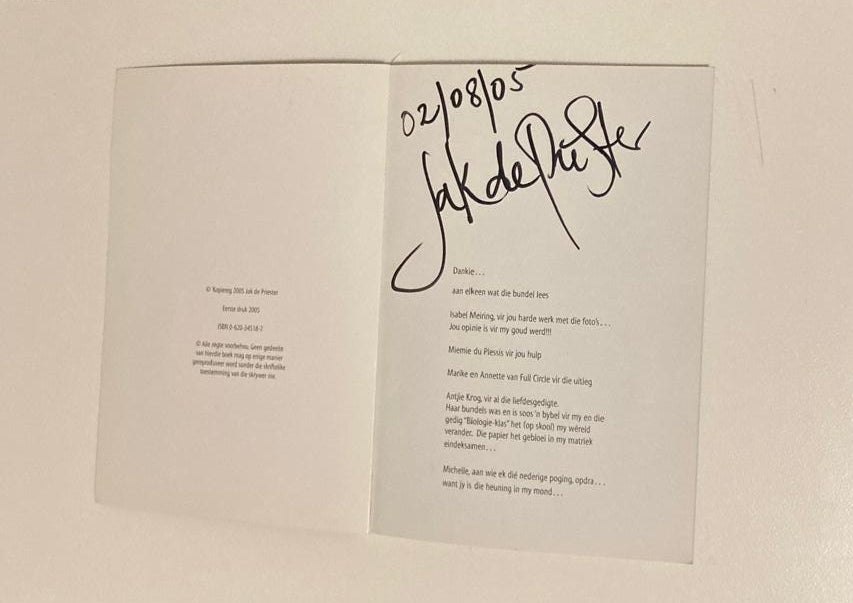 © Kopiereg 2005 Jak de Priester
Eerste druk 2005
ISBN 0-620-34518-2
© Alle regte voorbehou. Geen gedeelte
van hierdie boek mag op enige manier
gereproduseer word sonder die skriftelike
toestemming van die skrywer nie.
02/08/05
Jak de Priester
Dankie...
aan elkeen wat die bundel lees
Isabel Meiring, vir jou harde werk met die foto's...
Jou opinie is vir my goud werd!!!
Miemie du Plessis vir jou hulp
Marike en Annette van Full Circle vir die uitleg
Antjie Krog, vir al die liefdesgedigte.
Haar bundels was en is soos 'n bybel vir my en die
gedig "Biologie-klas" het (op skool) my wêreld
verander. Die papier het gebloei in my matriek
eindeksamen...
Michelle, aan wie ek dié nederige poging, opdra...
want jy is die heuning in my mond...